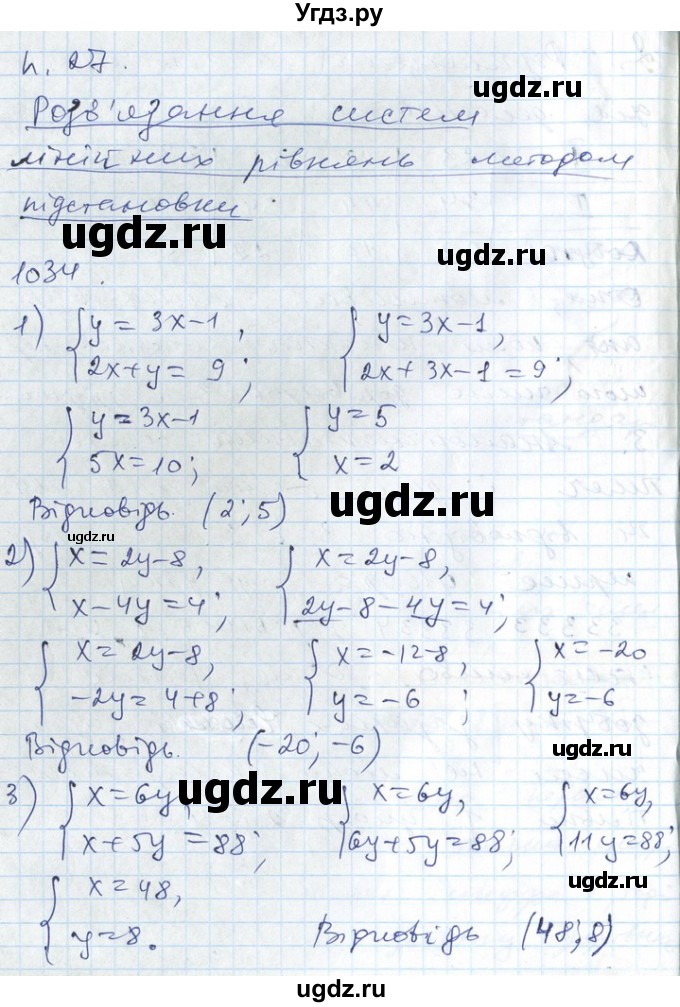 Угдз.ру
п. 27.
Розв'язання систем
лінійних рівнянь методом
підстановки
ugdz.ru
ugdz.ru
1034.
1) { y = 3x-1, 2x+y = 9; { y=3x-1, 2x+3x-1=9;
{ y=3x-1 5x=10; { y=5 x=2
ugdz.ru
Відповідь. (2; 5)
ugdz.ru
2) { x=2y-8, x-4y=4; { x=2y-8, 2y-8-4y=4;
{ x=2y-8, -2y=4+8; { x=-12-8, y=-6; { x=-20 y=-6
ugdz.ru
Відповідь. (-20; -6)
ugdz.ru
3) { x=6y, x+5y=88; { x=6y, 6y+5y=88; { x=6y, 11y=88;
ugdz.ru
{ x=48, y=8. Відповідь (48; 8)
ugdz.ru